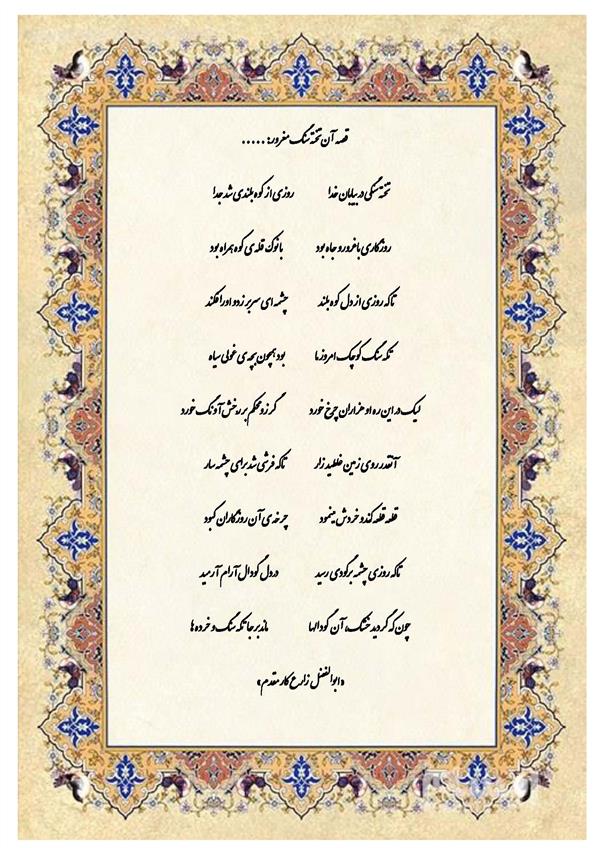 قصه آن تخته سنگ مغرور: .....
تخته سنگی در بیابان خدا روزی از کوه بلندی شد جدا
روزگاری با غرور و جاه بود با نوک قله ی کوه همراه بود
تا که روزی از دل کوه بلند چشمه ای سر بر زد و او را فکند
تکه سنگ کوچک امروز ما بود همچون بچه ی غولی سیاه
لیک در این ره او هزاران چرخ خورد گرز و محکم بر رخش آونگ خورد
آنقدر روی زمین غلطید زار تا که فرشی شد برای چشمه سار
قلعه قلعه کند و خردش مینمود چرخه ی آن روزگاران کبود
تا که روزی چشمه بر گودی رسید در دل گودال آرام آرمید
چون که گردید خشک، آن گودالها ماند بر جا تکه سنگ و خرده ها
«ابوالفضل زارع کار مقدم»